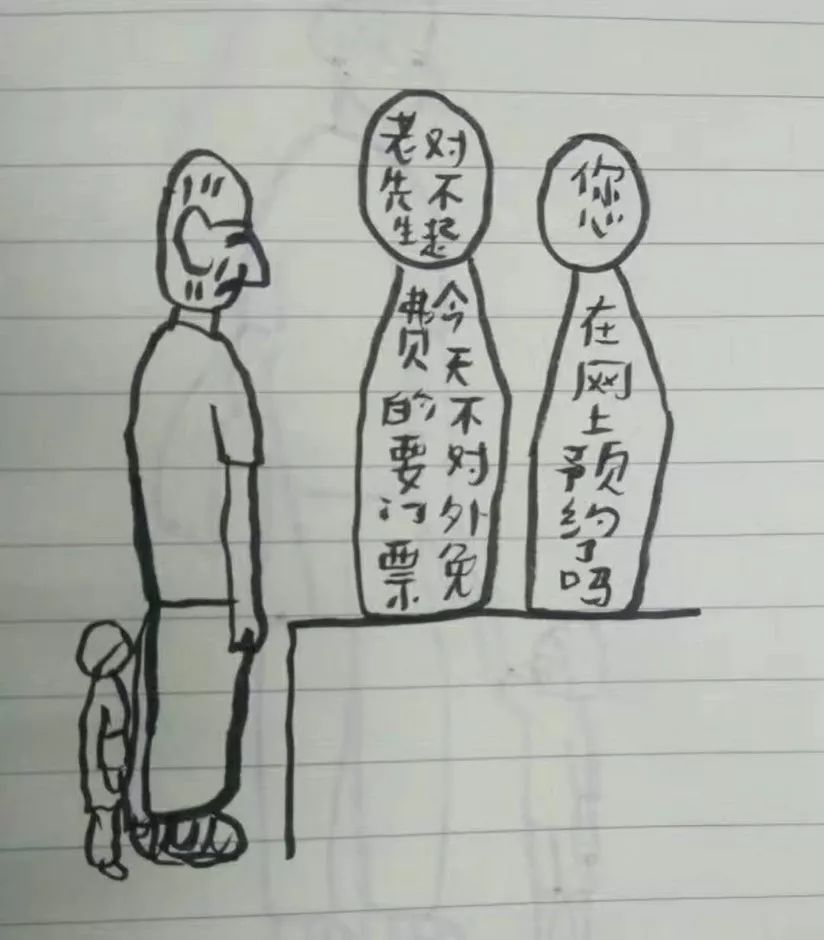 对不起
老先生
今天不对外免
费的要门票
您
在网上预约了吗